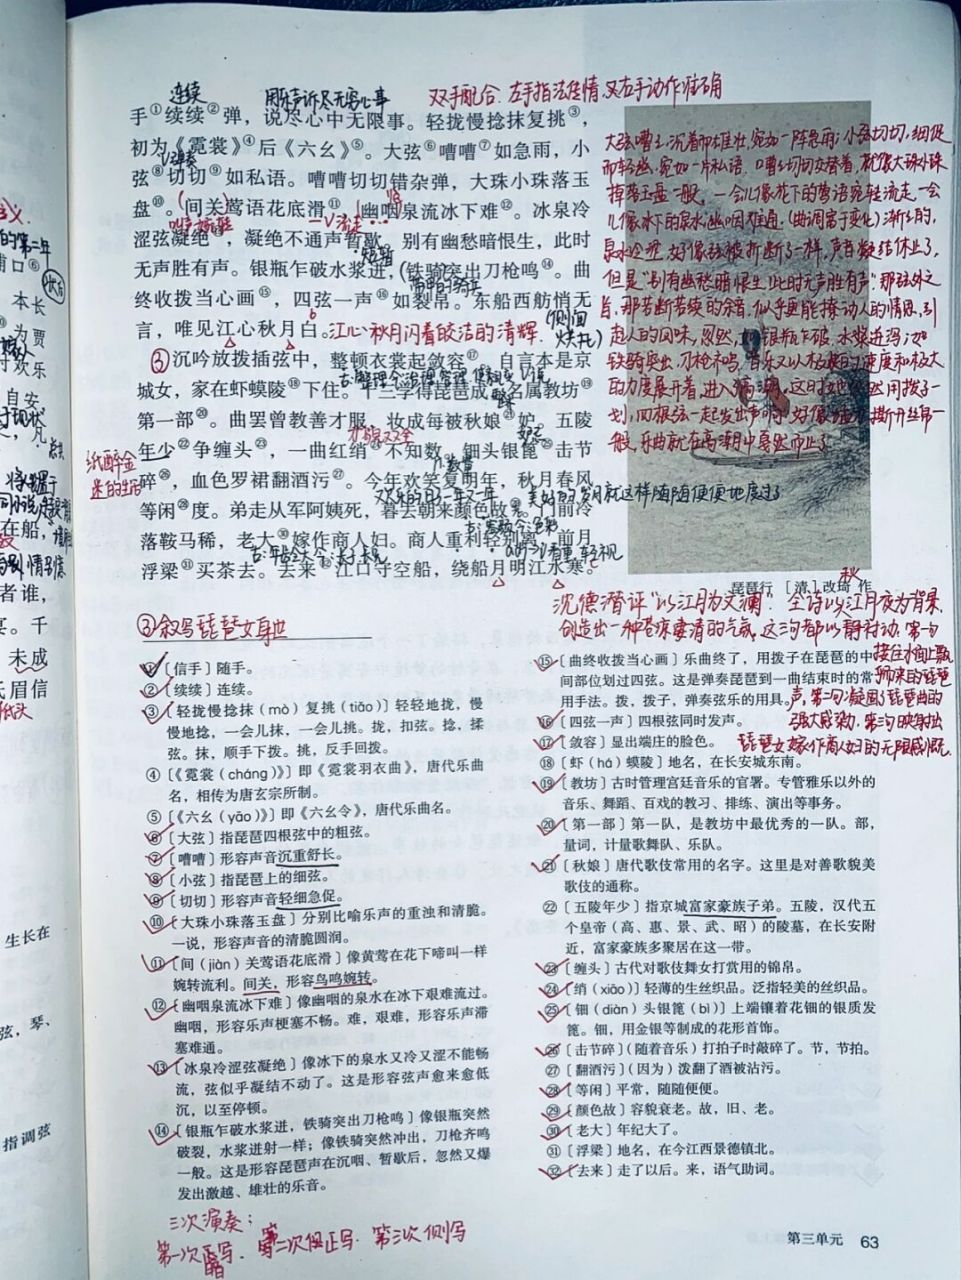 连续
用琴声诉尽无穷心事
双手配合.左手指法传情.又右手动作准确
手①续续②弹，说尽心中无限事。轻拢慢捻抹复挑③，
初为《霓裳》④后《六幺》⑤。大弦⑥嘈嘈⑦如急雨，小
弦⑧切切⑨如私语。嘈嘈切切错杂弹，大珠小珠落玉
盘⑩。间关莺语花底滑⑪，幽咽泉流冰下难⑫。冰泉冷
涩弦凝绝⑬，凝绝不通声暂歇。别有幽愁暗恨生，此时
无声胜有声。银瓶乍破水浆迸，铁骑突出刀枪鸣⑭。曲
终收拨当心画⑮，四弦一声⑯如裂帛。东船西舫悄无
言，唯见江心秋月白。
江心秋月闪着皎洁的清辉.
(侧面
烘托)
③沉吟放拨插弦中，整顿衣裳起敛容⑰。自言本是京
城女，家在虾蟆陵⑱下住。十三学得琵琶成，名属教坊⑲
第一部⑳。曲罢曾教善才服，妆成每被秋娘㉑妒。五陵
年少㉒争缠头㉓，一曲红绡㉔不知数。钿头银篦㉕击节
碎㉖，血色罗裙翻酒污㉗。今年欢笑复明年，秋月春风
等闲㉘度。弟走从军阿姨死，暮去朝来颜色故㉙。门前冷
落鞍马稀，老大㉚嫁作商人妇。商人重利轻别离，前月
浮梁㉛买茶去。去来㉜江口守空船，绕船月明江水寒。
纸醉金
迷的生活
才貌双全
欢乐的日子一年又一年
美好的岁月就这样随随便便地度过了
大弦嘈嘈,沉着而雄壮,宛如一阵急雨;小弦切切,细促
而轻幽,宛如一片私语.嘈嘈切切交替着,就像大珠小珠
掉落玉盘一般.一会儿像花下的莺语宛转流走,一会
儿像冰下的泉水幽咽难通.(曲调富于变化)渐渐的,
泉水冷涩,好像弦被折断了一样,声音暂结休止了,
但是"别有幽愁暗恨生,此时无声胜有声".那弦外之
音,那若断若续的余音,似乎更能撩动人的情思,引
起人的回味,忽然,"银瓶乍破,水浆迸泻,如
铁骑突出,刀枪和鸣,音乐又以极快的速度和极大
的力度展开着,进入高潮.
琵琶行　［清］改琦　作
沈德潜评"以江月为文澜".全诗以秋江月夜为背景
创造出一种苍凉凄清的气氛,这三句都以静衬动,第一句
接住水面上飘
来的琵琶
声,第二句凝固琵琶曲的
强大感染,第三句映射出
琵琶女嫁作商人妇的无限感慨.
③叙写琵琶女身世
①〔信手〕随手。
②〔续续〕连续。
③〔轻拢慢捻抹（mò）复挑（tiǎo）〕轻轻地拢，慢
慢地捻，一会儿抹，一会儿挑。拢，扣弦。捻，揉
弦。抹，顺手下拨。挑，反手回拨。
④〔《霓裳（cháng）》〕即《霓裳羽衣曲》，唐代乐曲
名，相传为唐玄宗所制。
⑤〔《六幺（yāo）》〕即《六幺令》，唐代乐曲名。
⑥〔大弦〕指琵琶四根弦中的粗弦。
⑦〔嘈嘈〕形容声音沉重舒长。
⑧〔小弦〕指琵琶上的细弦。
⑨〔切切〕形容声音轻细急促。
⑩〔大珠小珠落玉盘〕分别比喻乐声的重浊和清脆。
一说，形容声音的清脆圆润。
⑪〔间（jiàn）关莺语花底滑〕像黄莺在花下啼叫一样
婉转流利。间关，形容鸟鸣婉转。
⑫〔幽咽泉流冰下难〕像幽咽的泉水在冰下艰难流过。
幽咽，形容乐声梗塞不畅。难，艰难，形容乐声滞
塞难通。
⑬〔冰泉冷涩弦凝绝〕像冰下的泉水又冷又涩不能畅
流，弦似乎凝结不动了。这是形容弦声愈来愈低
沉，以至停顿。
⑭〔银瓶乍破水浆迸，铁骑突出刀枪鸣〕像银瓶突然
破裂，水浆迸射一样；像铁骑突然冲出，刀枪齐鸣
一般。这是形容琵琶声在沉咽、暂歇后，忽然又爆
发出激越、雄壮的乐音。
⑮〔曲终收拨当心画〕乐曲终了，用拨子在琵琶的中
间部位划过四弦。这是弹奏琵琶到一曲结束时的常
用手法。拨，拨子，弹奏弦乐的用具。
⑯〔四弦一声〕四根弦同时发声。
⑰〔敛容〕显出端庄的脸色。
⑱〔虾（há）蟆陵〕地名，在长安城东南。
⑲〔教坊〕古时管理宫廷音乐的官署。专管雅乐以外的
音乐、舞蹈、百戏的教习、排练、演出等事务。
⑳〔第一部〕第一队，是教坊中最优秀的一队。部，
量词，计量歌舞队、乐队。
㉑〔秋娘〕唐代歌伎常用的名字。这里是对善歌貌美
歌伎的通称。
㉒〔五陵年少〕指京城富家豪族子弟。五陵，汉代五
个皇帝（高、惠、景、武、昭）的陵墓，在长安附
近，富家豪族多聚居在这一带。
㉓〔缠头〕古代对歌伎舞女打赏用的锦帛。
㉔〔绡（xiāo）〕轻薄的生丝织品。泛指轻美的丝织品。
㉕〔钿（diàn）头银篦（bì）〕上端镶着花钿的银质发
篦。钿，用金银等制成的花形首饰。
㉖〔击节碎〕（随着音乐）打拍子时敲碎了。节，节拍。
㉗〔翻酒污〕（因为）泼翻了酒被沾污。
㉘〔等闲〕平常，随随便便。
㉙〔颜色故〕容貌衰老。故，旧、老。
㉚〔老大〕年纪大了。
㉛〔浮梁〕地名，在今江西景德镇北。
㉜〔去来〕走了以后。来，语气助词。
三次演奏:
第三单元　63